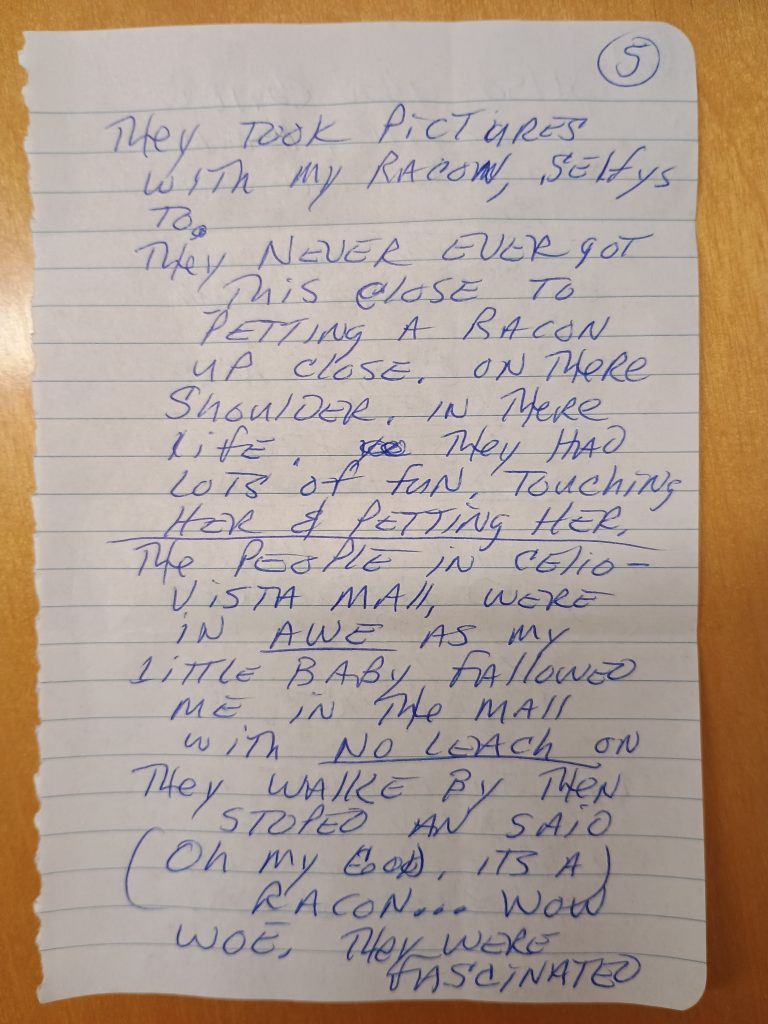 5
They TOOK PiCTURES
WITh my RACOON, SElfys
TO.
They NEVER EVER gOT
This ClOSE TO
PETTING A RACON
UP CLOSE. ON THERE
ShOULDER. IN THERE
LifE. They HAD
LOTS Of fUN, TOUChING
HER & PETTING HER.
The PEOPLE IN CElio-
ViSTA MAll, WERE
iN AWE AS my
LiTTLE BABy fAllOWED
ME iN The MAll
wiTh NO LEACh ON
They WALKE By THEN
STOPED AN SAiD
(Oh my GOOD, ITS A)
RACON... WOW
WOE, They WERE
fASCiNATED